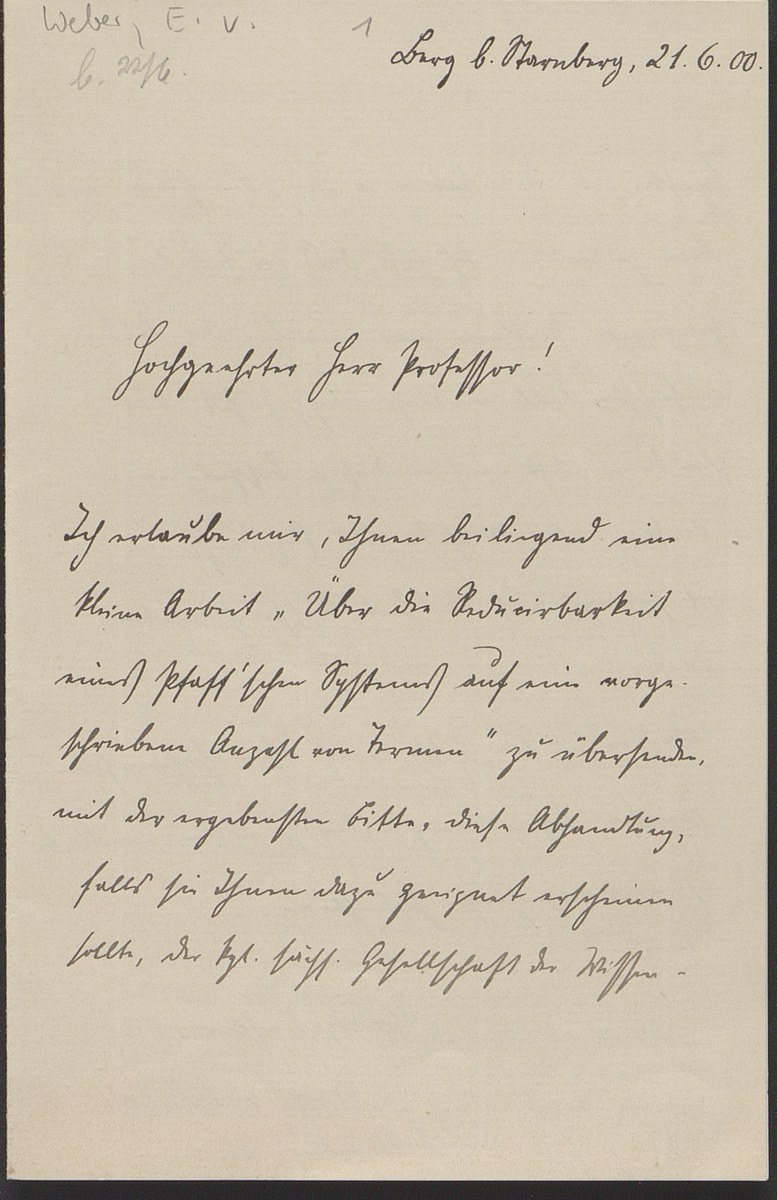 Weber, E. v.
1
b. 22/6.
Berg b. Starnberg, 21. 6. 00.
Hochgeehrter Herr Professor!
Ich erlaube mir, Ihnen beiliegend eine
kleine Arbeit „Über die Reducirbarkeit
eines Pfaff'schen Systems auf eine vorge-
schriebene Anzahl von Termen" zu übersenden,
mit der ergebensten Bitte, diese Abhandlung,
falls sie Ihnen dazu geeignet erscheinen
sollte, der kgl. sächs. Gesellschaft der Wissen-